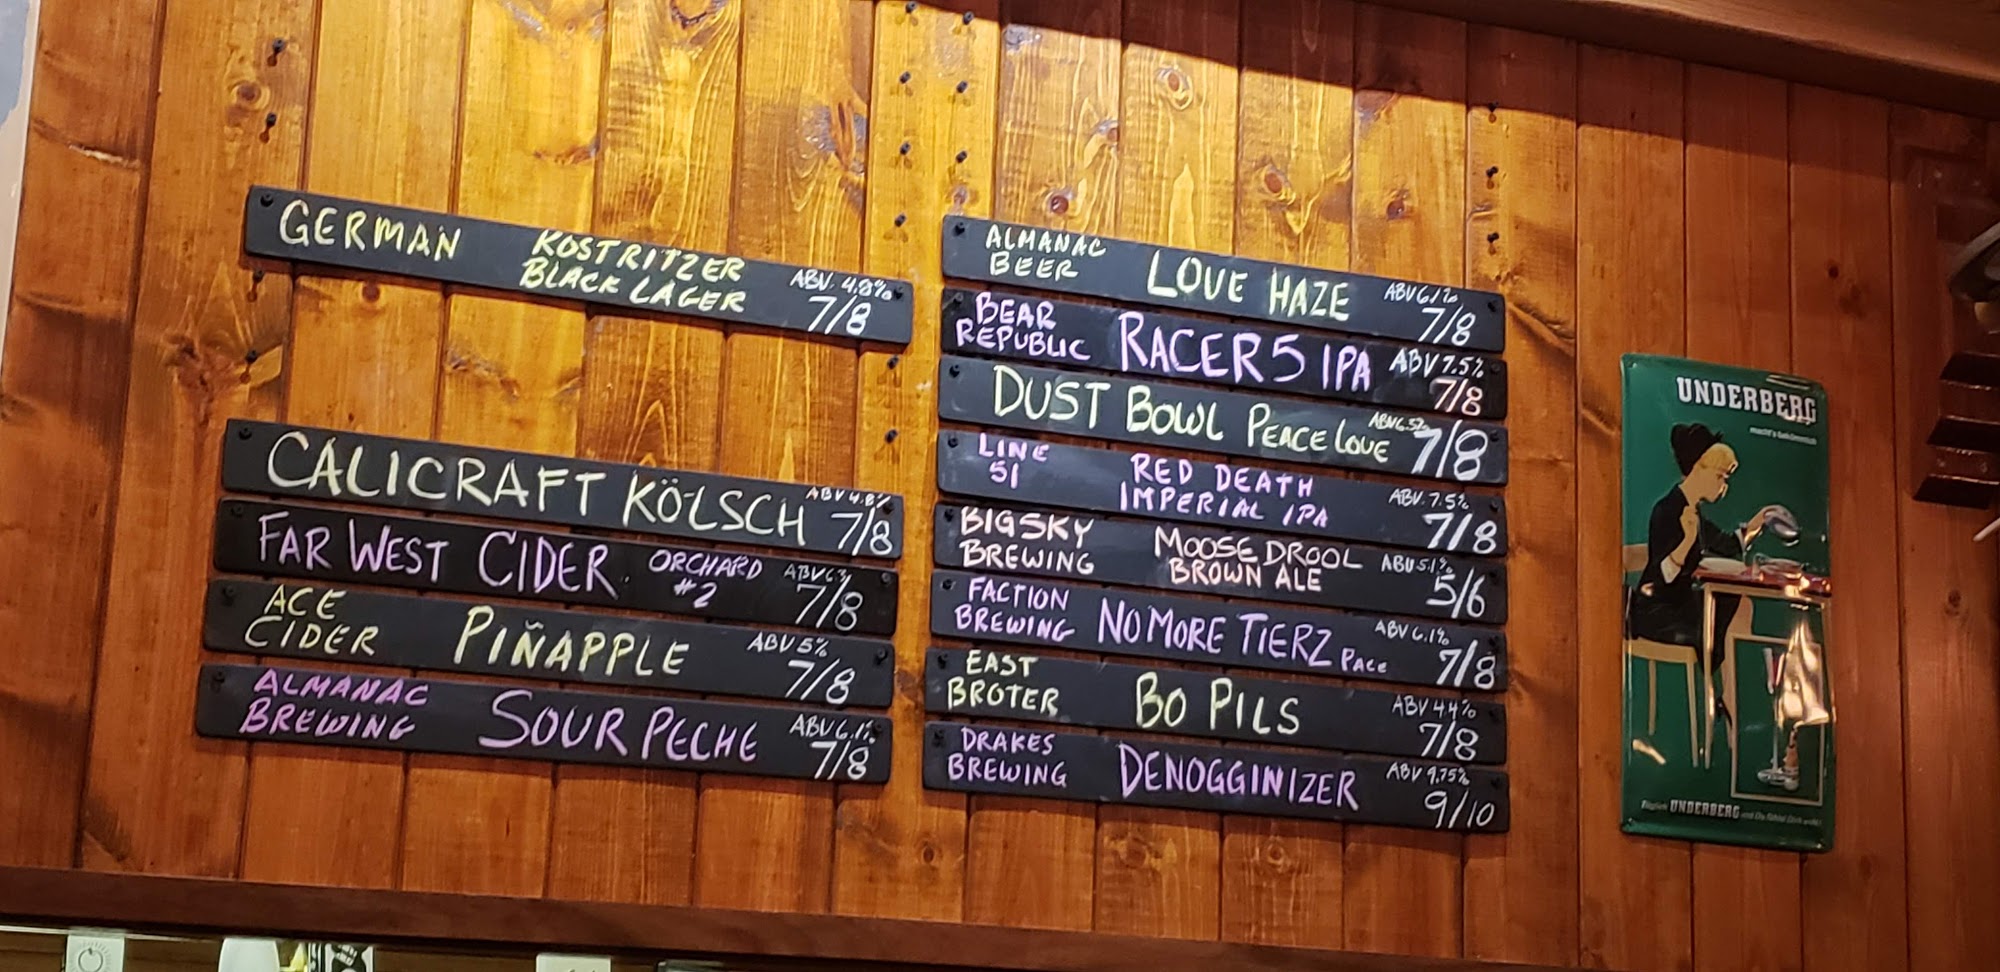 GERMAN
KOSTRITZER
BLACK LAGER
ABV. 4.8%
7/8
CALICRAFT KÖLSCH
ABV 4.8%
7/8
FAR WEST CIDER
ORCHARD
#2
ABV 6.3
7/8
ACE
CIDER
PIÑAPPLE
ABV 5%
7/8
ALMANAC
BREWING
SOUR PECHE
ABV 6.1%
7/8
ALMANAC
BEER
LOVE HAZE
ABV 6.1%
7/8
BEAR
REPUBLIC
RACER 5 IPA
ABV 7.5%
7/8
DUST BOWL PEACE LOVE
ABV 6.5%
7/8
LINE
51
RED DEATH
IMPERIAL IPA
ABV. 7.5%
7/8
BIG SKY
BREWING
MOOSE DROOL
BROWN ALE
ABV 5.1%
5/6
FACTION
BREWING
NO MORE TIERZ PALE
ABV 6.1%
7/8
EAST
BROTER
BO PILS
ABV 4.4%
7/8
DRAKES
BREWING
DENOGGINIZER
ABV 9.75%
9/10
UNDERBERG
UNDERBERG